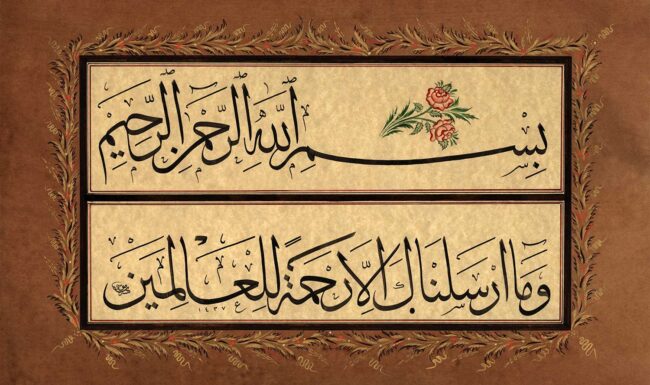 بِسْمِ اللّٰهِ الرَّحْمٰنِ الرَّحِيْمِ
وَمَا اَرْسَلْنَاكَ اِلَّا رَحْمَةً لِلْعَالَمِيْنَ
١٤٣٧